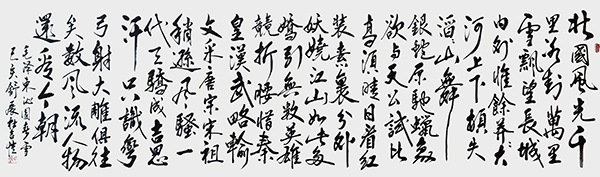 北國風光千
里冰封萬里
雪飄望長城
内外惟餘莽々大
河上下頓失
滔々山舞
銀蛇原馳蠟象
欲与天公試比
高須晴日看紅
裝素裹分外
妖嬈江山如此多
嬌引無數英雄
競折腰惜秦
皇漢武略輸
文采唐宗宋祖
稍遜風騷一
代天驕成吉思
汗只識彎
弓射大雕俱往
矣數風流人物
還看今朝
毛澤東沁園春雪
己亥